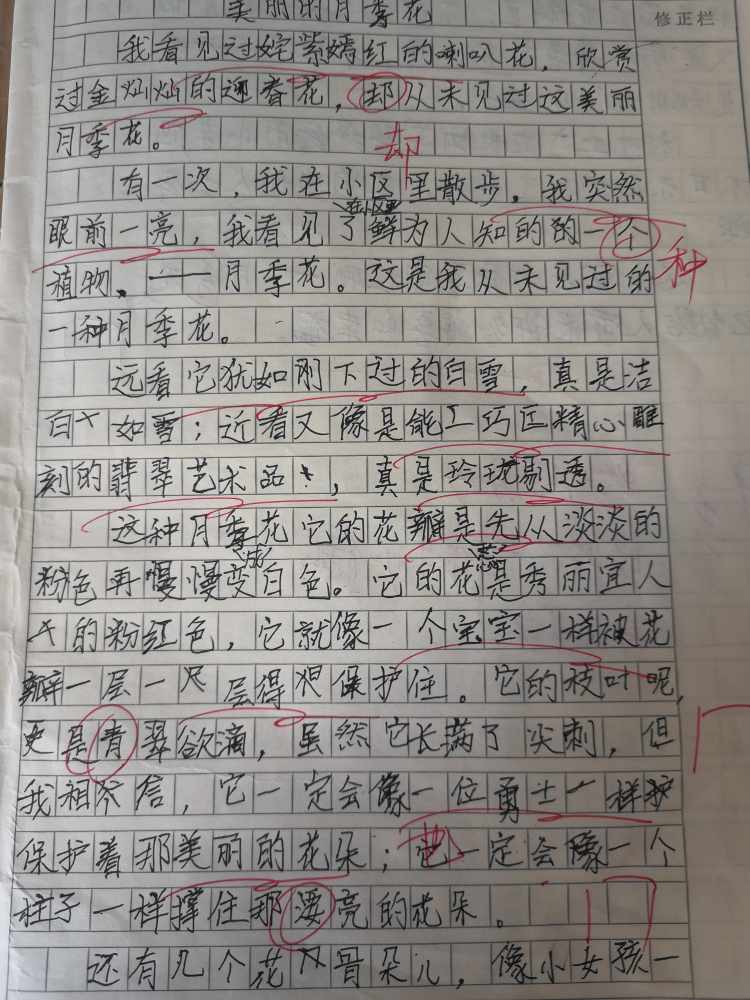 美丽的月季花
修正栏
我看见过姹紫嫣红的喇叭花，欣赏
过金灿灿的迎春花，却从未见过这美丽
月季花。
却
有一次，我在小区里散步。我突然
在小区里
眼前一亮，我看见了鲜为人知的的一个
种
植物、——月季花。这是我从未见过的
一种月季花。
远看它犹如刚下过的白雪，真是洁
白如雪；近看又像是能工巧匠精心雕
刻的翡翠艺术品，真是玲珑剔透。
这种月季花它的花瓣是先从淡淡的
成
蕊
粉色再慢慢变白色。它的花是秀丽宜人
的粉红色，它就像一个宝宝一样被花
瓣一层一层得很保护住。它的枝叶呢，
更是青翠欲滴，虽然它长满了尖刺，但
我相信，它一定会像一位勇士一样护
保护着那美丽的花朵；也一定会像一个
柱子一样撑住那漂亮的花朵。
还有几个花骨朵儿，像小女孩一